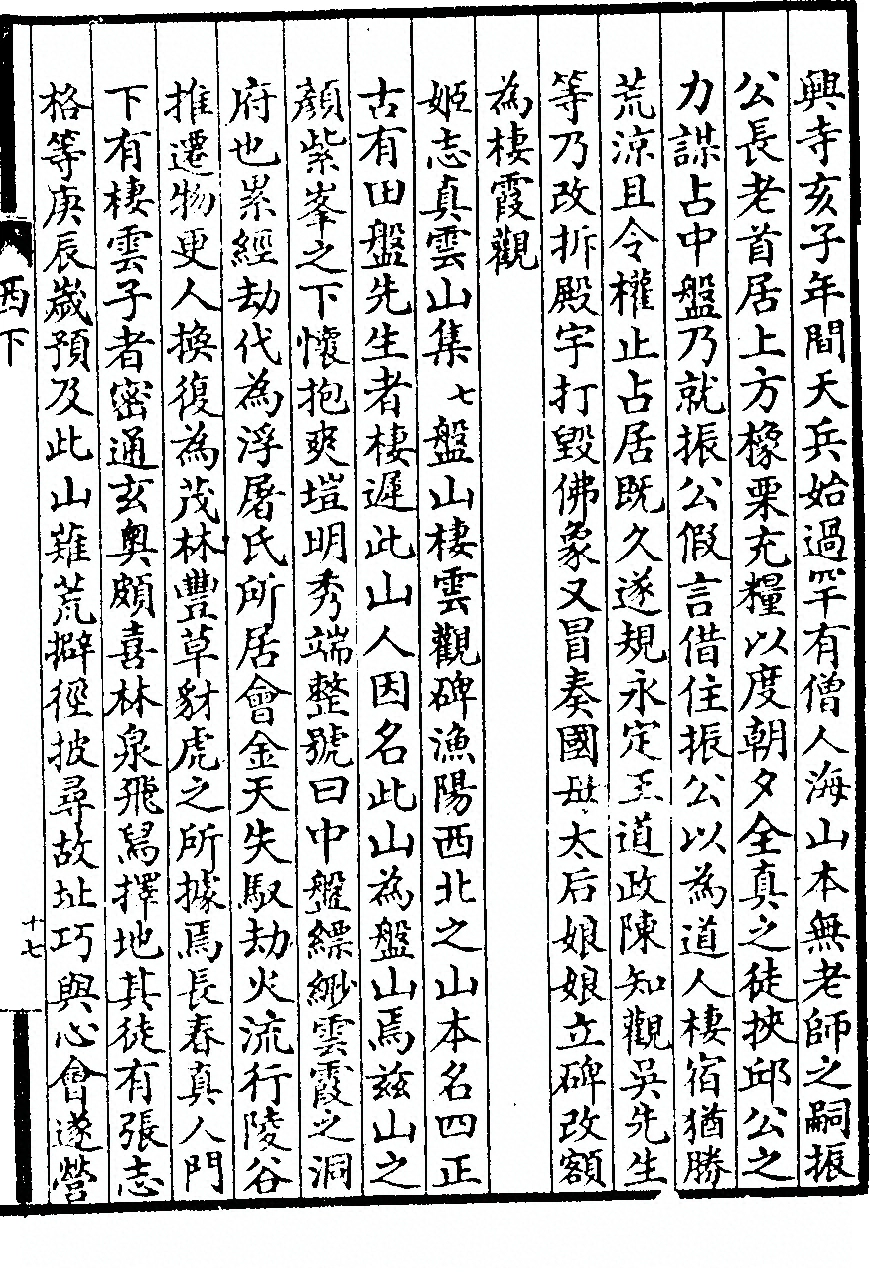 興寺亥子年間天兵始過罕有僧人海山本無老師之嗣振
公長老首居上方橡栗充糧以度朝夕全真之徒挾邱公之
力謀占中盤乃就振公假言借住振公以為道人棲宿猶勝
荒涼且令權止占居既久遂規永定王道政陳知觀吳先生
等乃改拆殿宇打毀佛象又冒奏國母太后娘娘立碑改額
為棲霞觀
姬志真雲山集七盤山棲雲觀碑漁陽西北之山本名四正
古有田盤先生者棲遲此山人因名此山為盤山焉茲山之
顏紫峯之下懷抱爽塏明秀端整號曰中盤縹緲雲霞之洞
府也累經劫代為浮屠氏所居會金天失馭劫火流行陵谷
推遷物更人換復為茂林豐草豺虎之所據焉長春真人門
下有棲雲子者密通玄奧頗喜林泉飛舄擇地其徒有張志
格等庚辰歲預及此山薙荒擗徑披尋故址巧與心會遂營
西下
十七